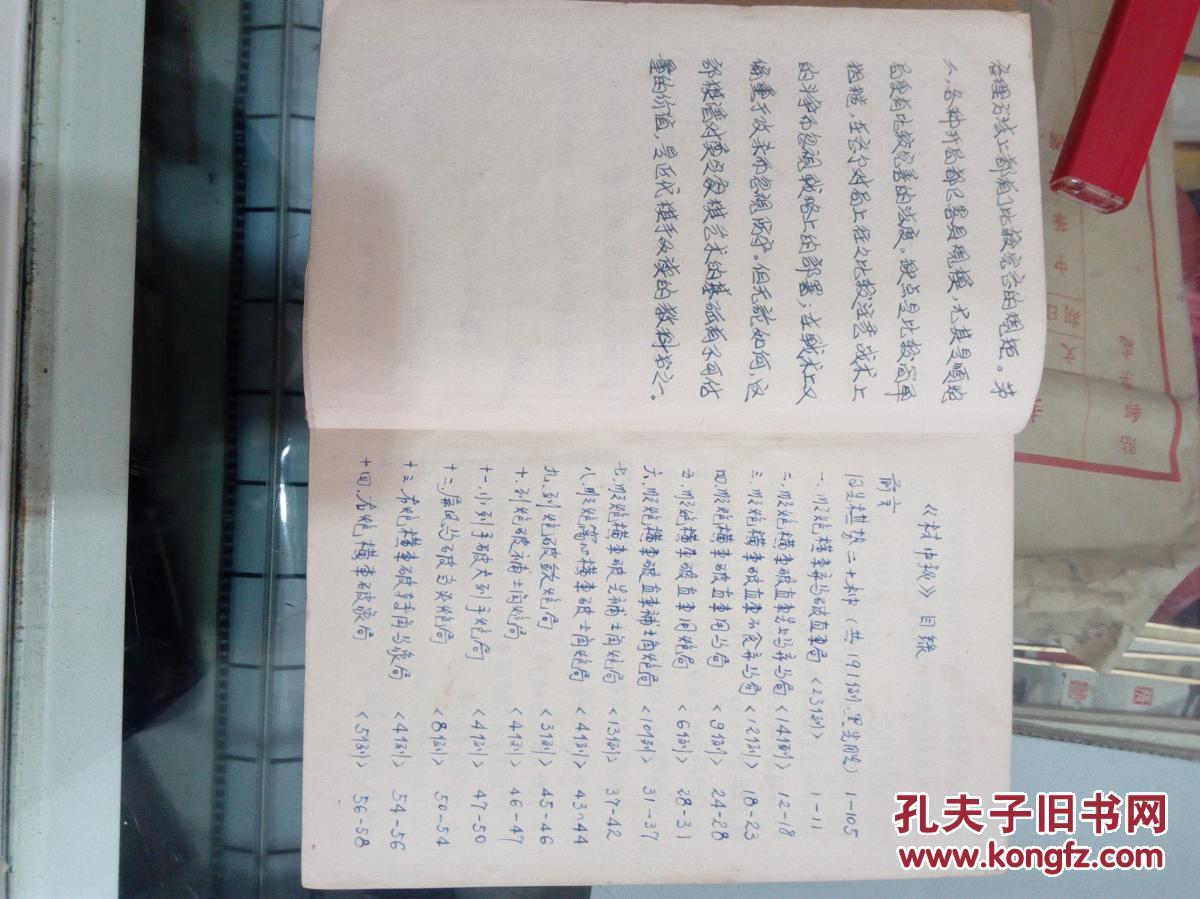 在理方法上都有了比较完善的规矩。第
二，各种开局都已署具规模，尤其是顺炮
局更有比较完善的法度。缺点是比较简单
粗糙，在云个对局上往々比较注重战术上
的斗争而忽视战略上的部署；在战术上又
偏重于攻杀而忽视防守。但无论如何，这
部棋谱对奠定象棋艺术的基础有不可估
量的价值，是近代棋手必读的教科书之一。
《桔中秘》目录
前言
全旱棋势二十种（共191例.黑先胜）1-105
一.顺炮横车弃马破直车局〈23例〉1-11
二.顺炮横车破直车先上马弃马局〈14例〉12-18
三.顺炮横车破直车不食弃马局〈12例〉18-23
四.顺炮横车破直车用马局〈9例〉24-28
五.顺炮横车破直车用炮局〈6例〉28-31
六.顺炮横车破直车补士角炮局〈10例〉31-37
七.顺炮横车破先补士角炮局〈13例〉37-42
八.顺炮窝心横车破士角炮局〈4例〉43~44
九.列炮破敛炮局〈3例〉45-46
十.列炮破补士角炮局〈4例〉46-47
十一.小列手破大列手炮局〈4例〉47-50
十二.屏风马破当头炮局〈8例〉50-54
十三.右炮横车破转角马象局〈4例〉54-56
十四.右炮横车破象局〈5例〉56-58
孔夫子旧书网
www.kongfz.com